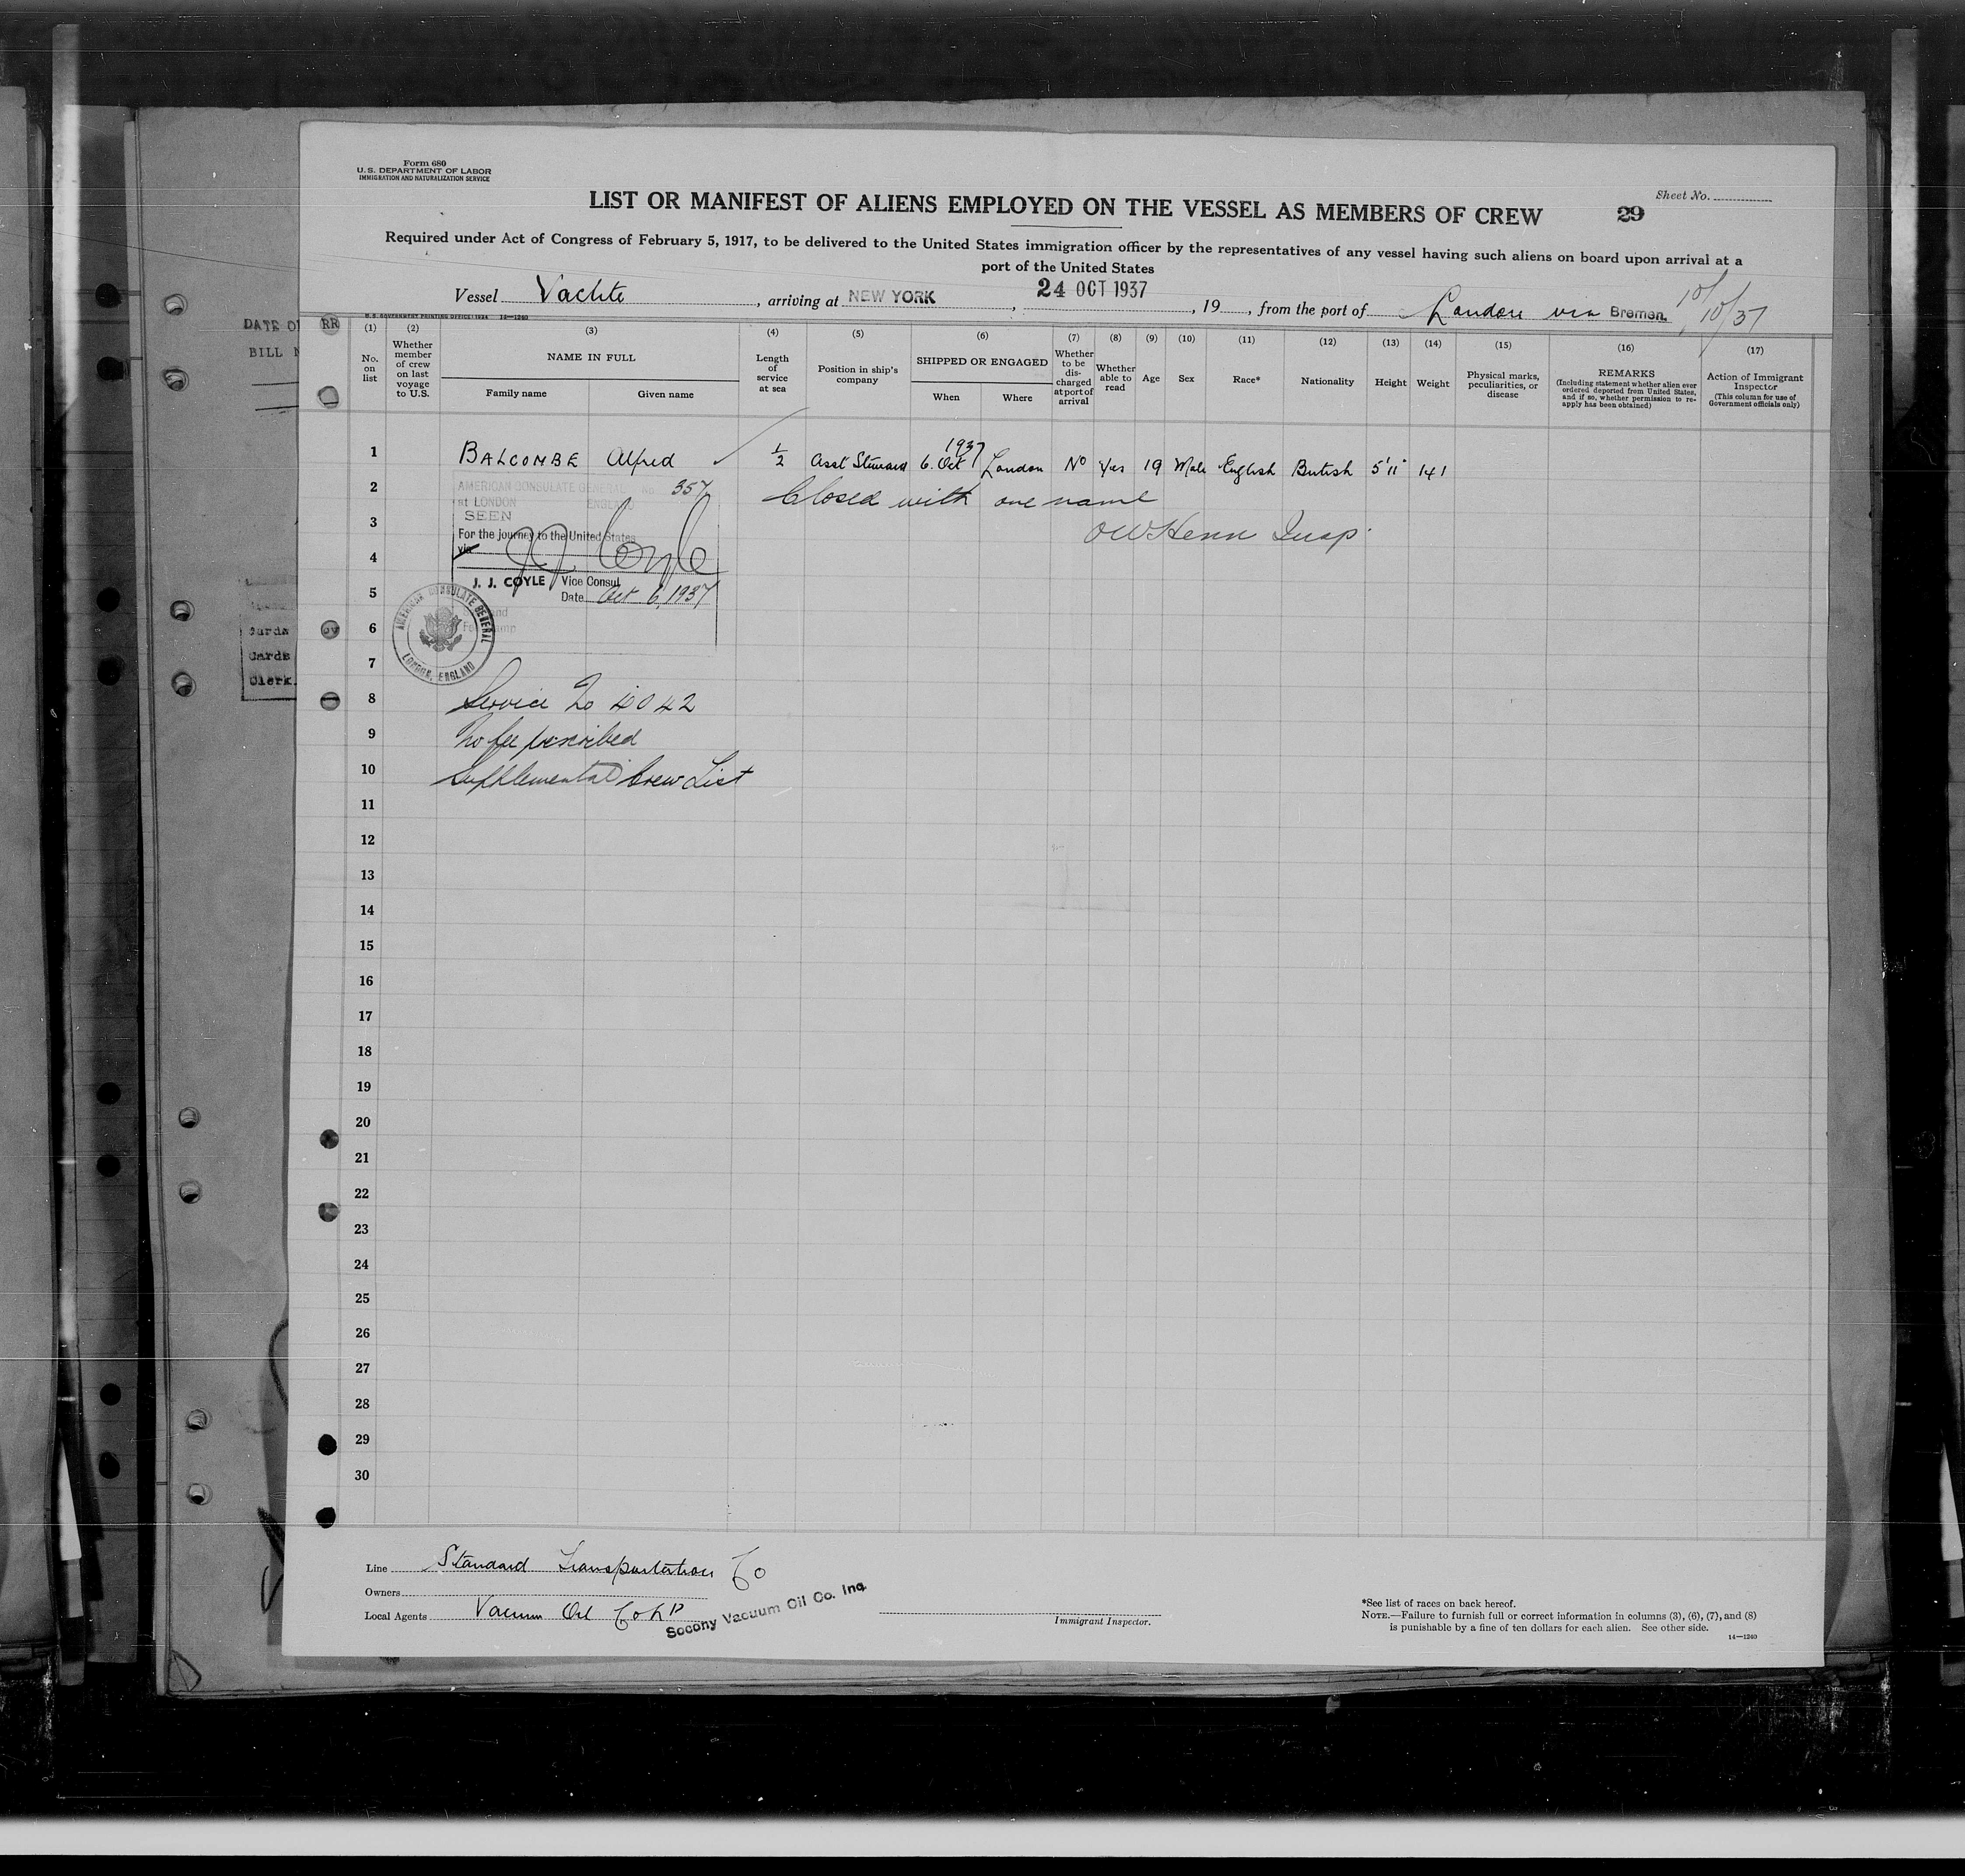 Form 680
U.S. DEPARTMENT OF LABOR
IMMIGRATION AND NATURALIZATION SERVICE
Sheet No.
LIST OR MANIFEST OF ALIENS EMPLOYED ON THE VESSEL AS MEMBERS OF CREW
29
Required under Act of Congress of February 5, 1917, to be delivered to the United States immigration officer by the representatives of any vessel having such aliens on board upon arrival at a
port of the United States
Vessel Vachte, arriving at NEW YORK, 24 OCT 1937, 19, from the port of London via Bremen. 10/10/37
U.S. GOVERNMENT PRINTING OFFICE: 1934 14—1240
DATE O
BILL
RR
(1) No. on list
(2) Whether member of crew on last voyage to U.S.
(3) NAME IN FULL
Family name
Given name
(4) Length of service at sea
(5) Position in ship's company
(6) SHIPPED OR ENGAGED
When
Where
(7) Whether to be discharged at port of arrival
(8) Whether able to read
(9) Age
(10) Sex
(11) Race*
(12) Nationality
(13) Height
(14) Weight
(15) Physical marks, peculiarities, or disease
(16) REMARKS
(Including statement whether alien ever ordered deported from United States, and if so, whether permission to re-apply has been obtained)
(17) Action of Immigrant Inspector
(This column for use of Government officials only)
1 BALCOMBE Alfred ½ Asst Steward 6. Oct 1937 London No Yes 19 Male English British 5'11" 141
2 AMERICAN CONSULATE GENERAL No 357 Closed with one name
at LONDON ENGLAND
SEEN
3 OW Henn Insp.
For the journey to the United States
via
4 JJ Coyle
J. J. COYLE Vice Consul
5 Date Oct 6, 1937
AMERICAN CONSULATE GENERAL
LONDON, ENGLAND
6
7
8 Service No 4042
9 No fee prescribed
10 Supplemental Crew List
11
12
13
14
15
16
17
18
19
20
21
22
23
24
25
26
27
28
29
30
Cards
Cards
Clerk
Line Standard Transportation Co
Owners
Local Agents Vacuum Oil Co Ld Socony Vacuum Oil Co. Inc.
Immigrant Inspector.
*See list of races on back hereof.
NOTE.—Failure to furnish full or correct information in columns (3), (6), (7), and (8)
is punishable by a fine of ten dollars for each alien. See other side.
14—1240